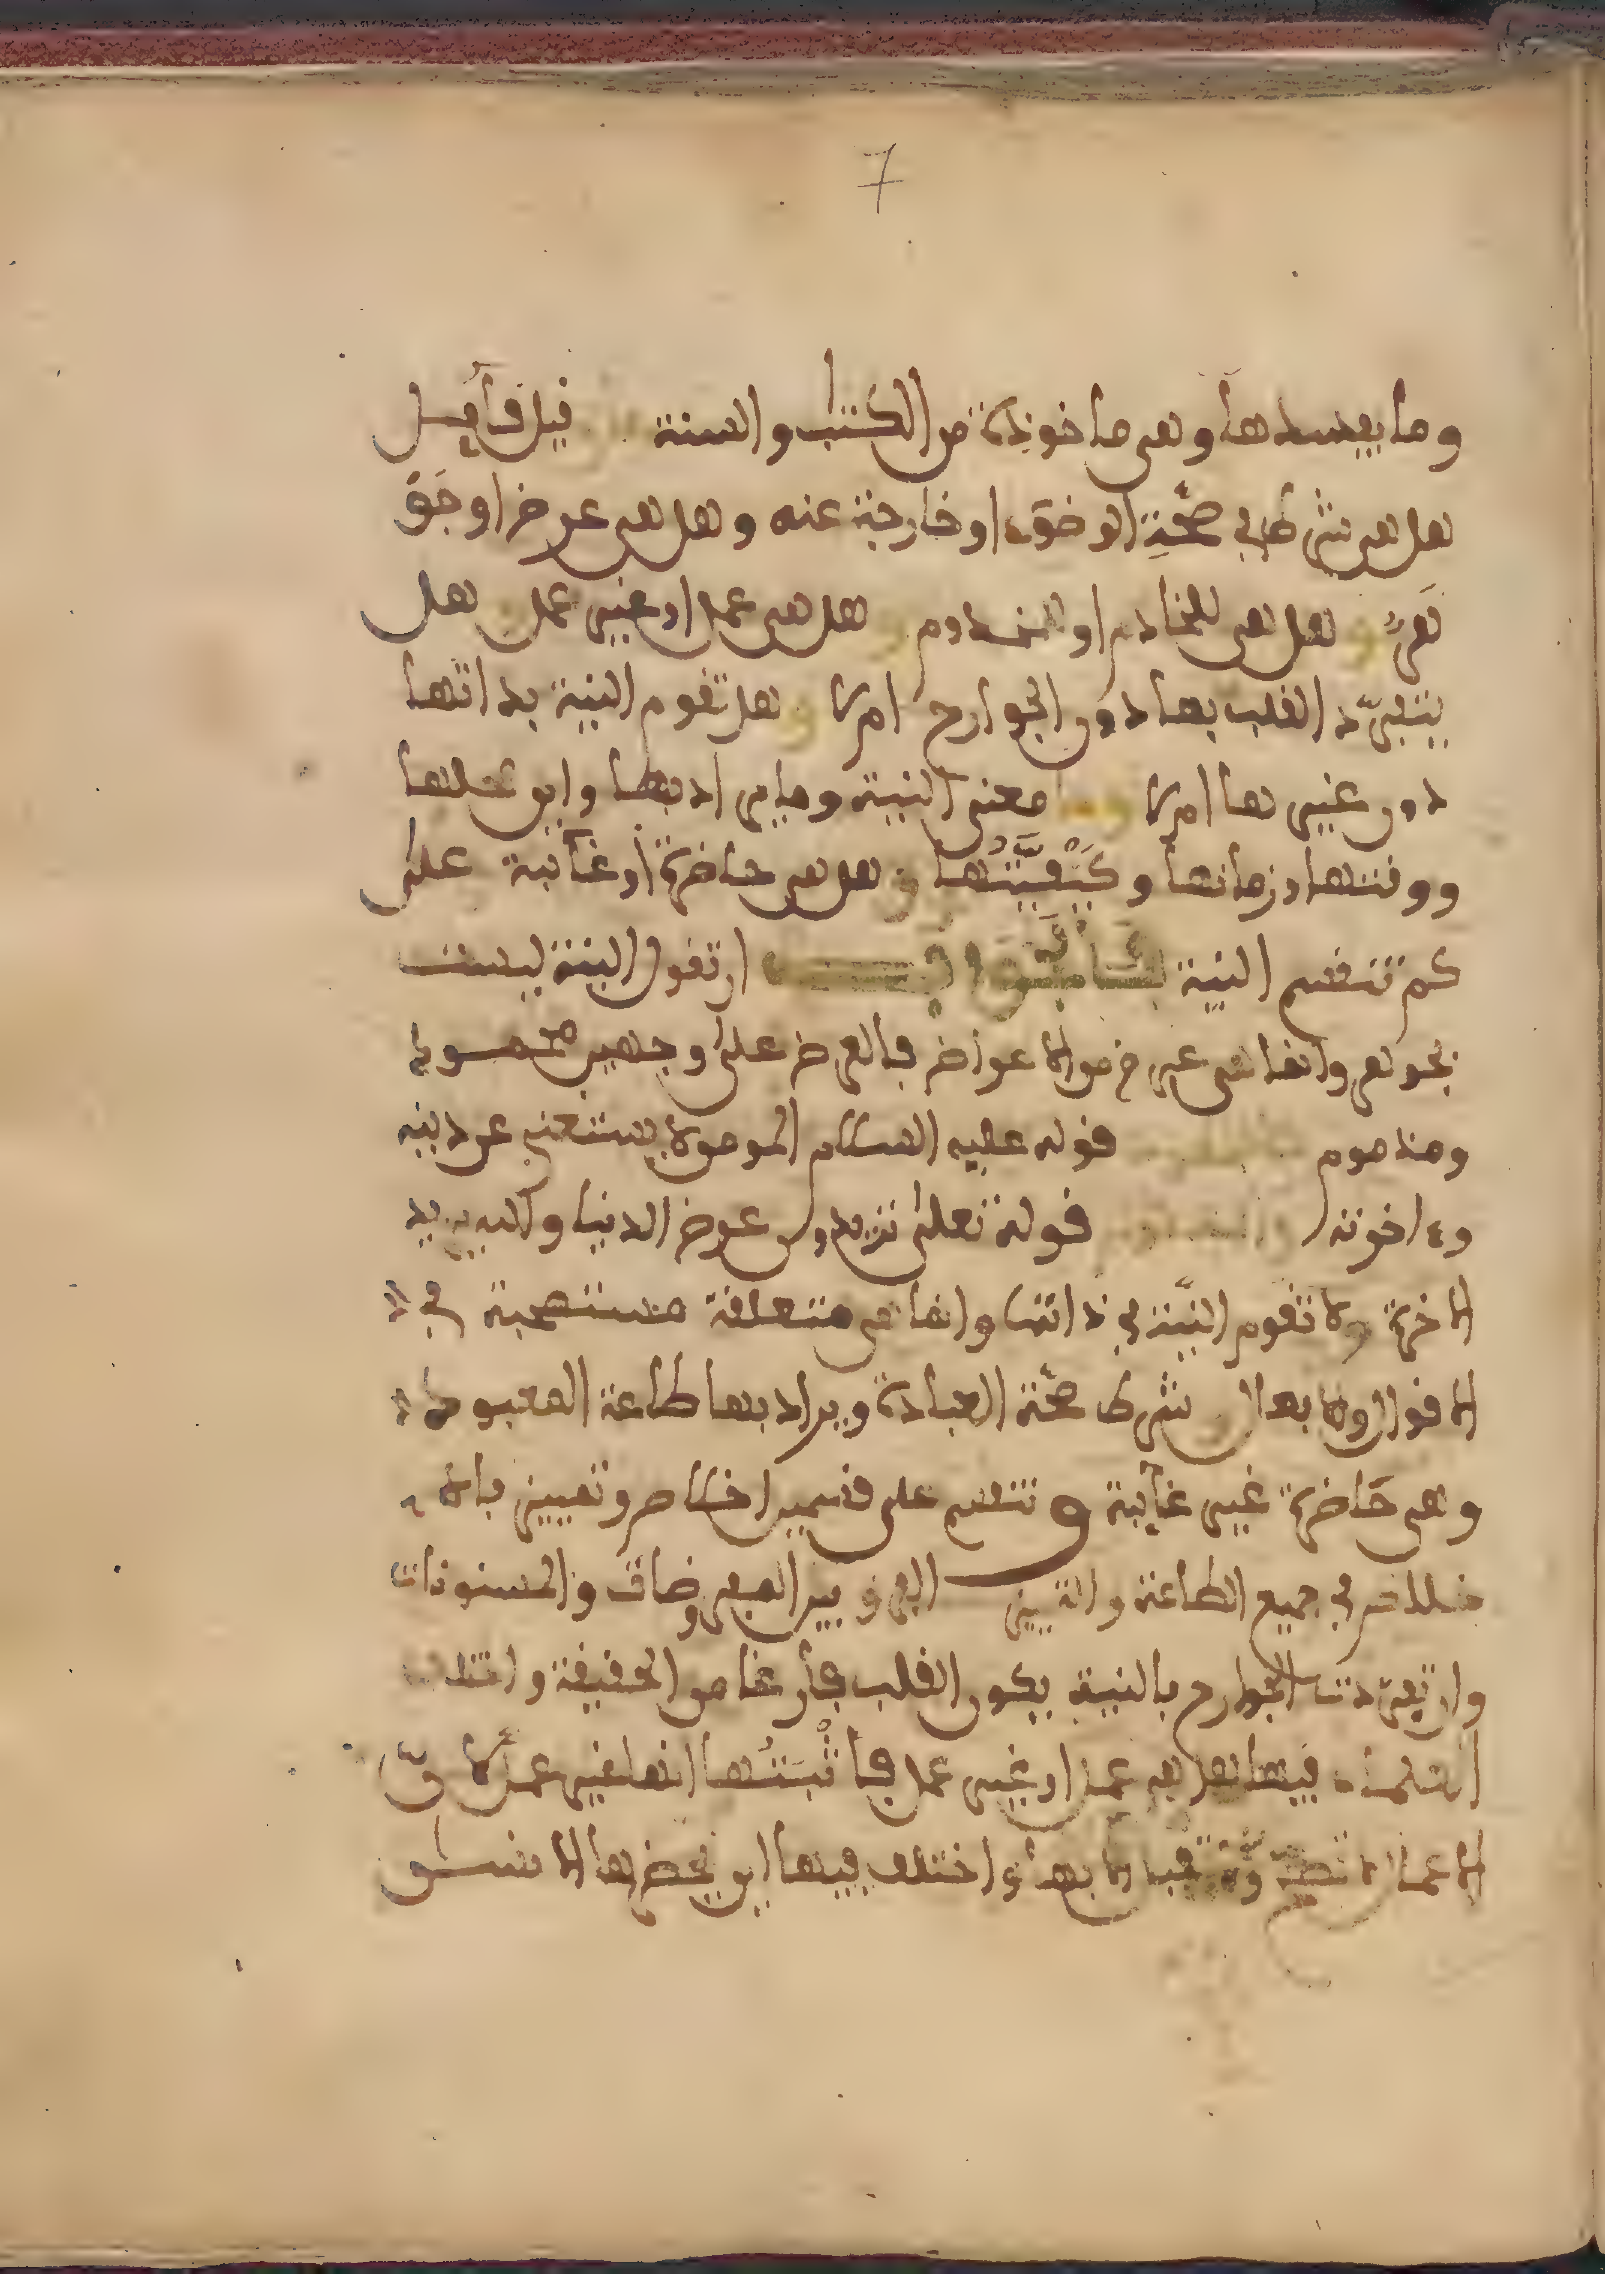 7
وما يفسدها وهي ماخوذة من الكتب والسنة فإن قيل قايل
هل هي شرط في صحة الوضوء او خارجة عنه وهل هي عرض او جو
هر وهل هي للخادم او المخدوم وهل هي عمل او غير عمل وهل
يتغير د القلب بها دون الجوارح ام لا وهل تقوم النية بذاتها
دون غيرها ام لا وما معنى النية وما يراد بها واين محلها
ووقتها وزمانها وكيفيتها وهل هي حاضرة او غايبة على
كم تنقسم النية فالجواب ان تقول النية ليست
بجوهر وانما هي عرض من الاعراض فالعرض على وجهين محمود
ومذموم قوله عليه السلام المومن لا يستغني عن دينه
ولا اخوته قوله تعلى تريدون عرض الدنيا والله يريد
الاخرة ولا تقوم النية في ذاتها وانما هي متعلقة مستصحبة في
الاقوال والافعال شرط صحة العبادة ويراد بها طاعة المعبود
وهي حاضرة غير غايبة وتنقسم على قسمين اخلاص وتمييز فالا
خلاص في جميع الطاعة والتمييز الفرق بين المفروضات والمسنونات
وان تغيرت الجوارح بالنية يكون القلب فارغا من الحقيقة واختلف
العلماء فيها هل هي عمل او غير عمل فاثبتها انها غير عمل لان
الاعمال لا تصح الا بها واختلف فيها اين يحضرها الانسان